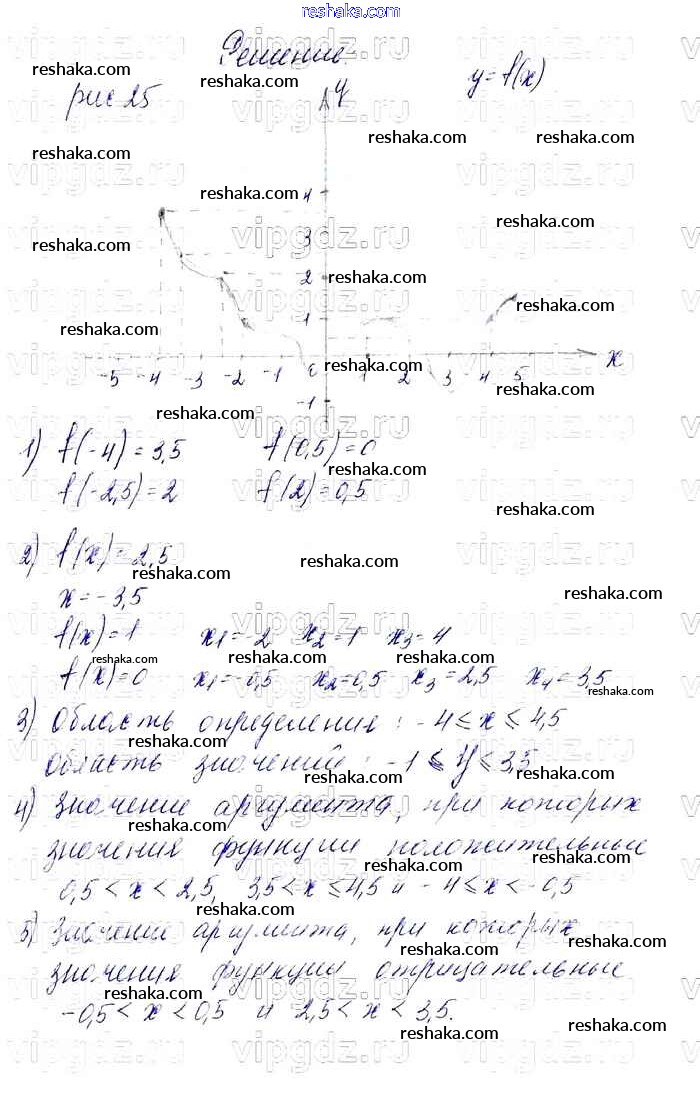 reshaka.com
Решение
y = f(x)
рис 25
y
4
3
2
1
-5 -4 -3 -2 -1 1 2 3 4 5 x
-1
1) f(-4) = 3,5 f(0,5) = 0
f(-2,5) = 2 f(2) = 0,5
2) f(x) = 2,5
x = -3,5
f(x) = 1 x1 = -2 x2 = 1 x3 = 4
f(x) = 0 x1 = -0,5 x2 = 0,5 x3 = 2,5 x4 = 3,5
3) Область определения: -4 ≤ x ≤ 4,5
Область значений: -1 ≤ y ≤ 3,5
4) Значение аргумента, при которых
значения функции положительные
0,5 < x < 2,5, 3,5 < x ≤ 4,5 и -4 ≤ x < -0,5
5) Значение аргумента, при которых
значения функции отрицательные
-0,5 < x < 0,5 и 2,5 < x < 3,5.